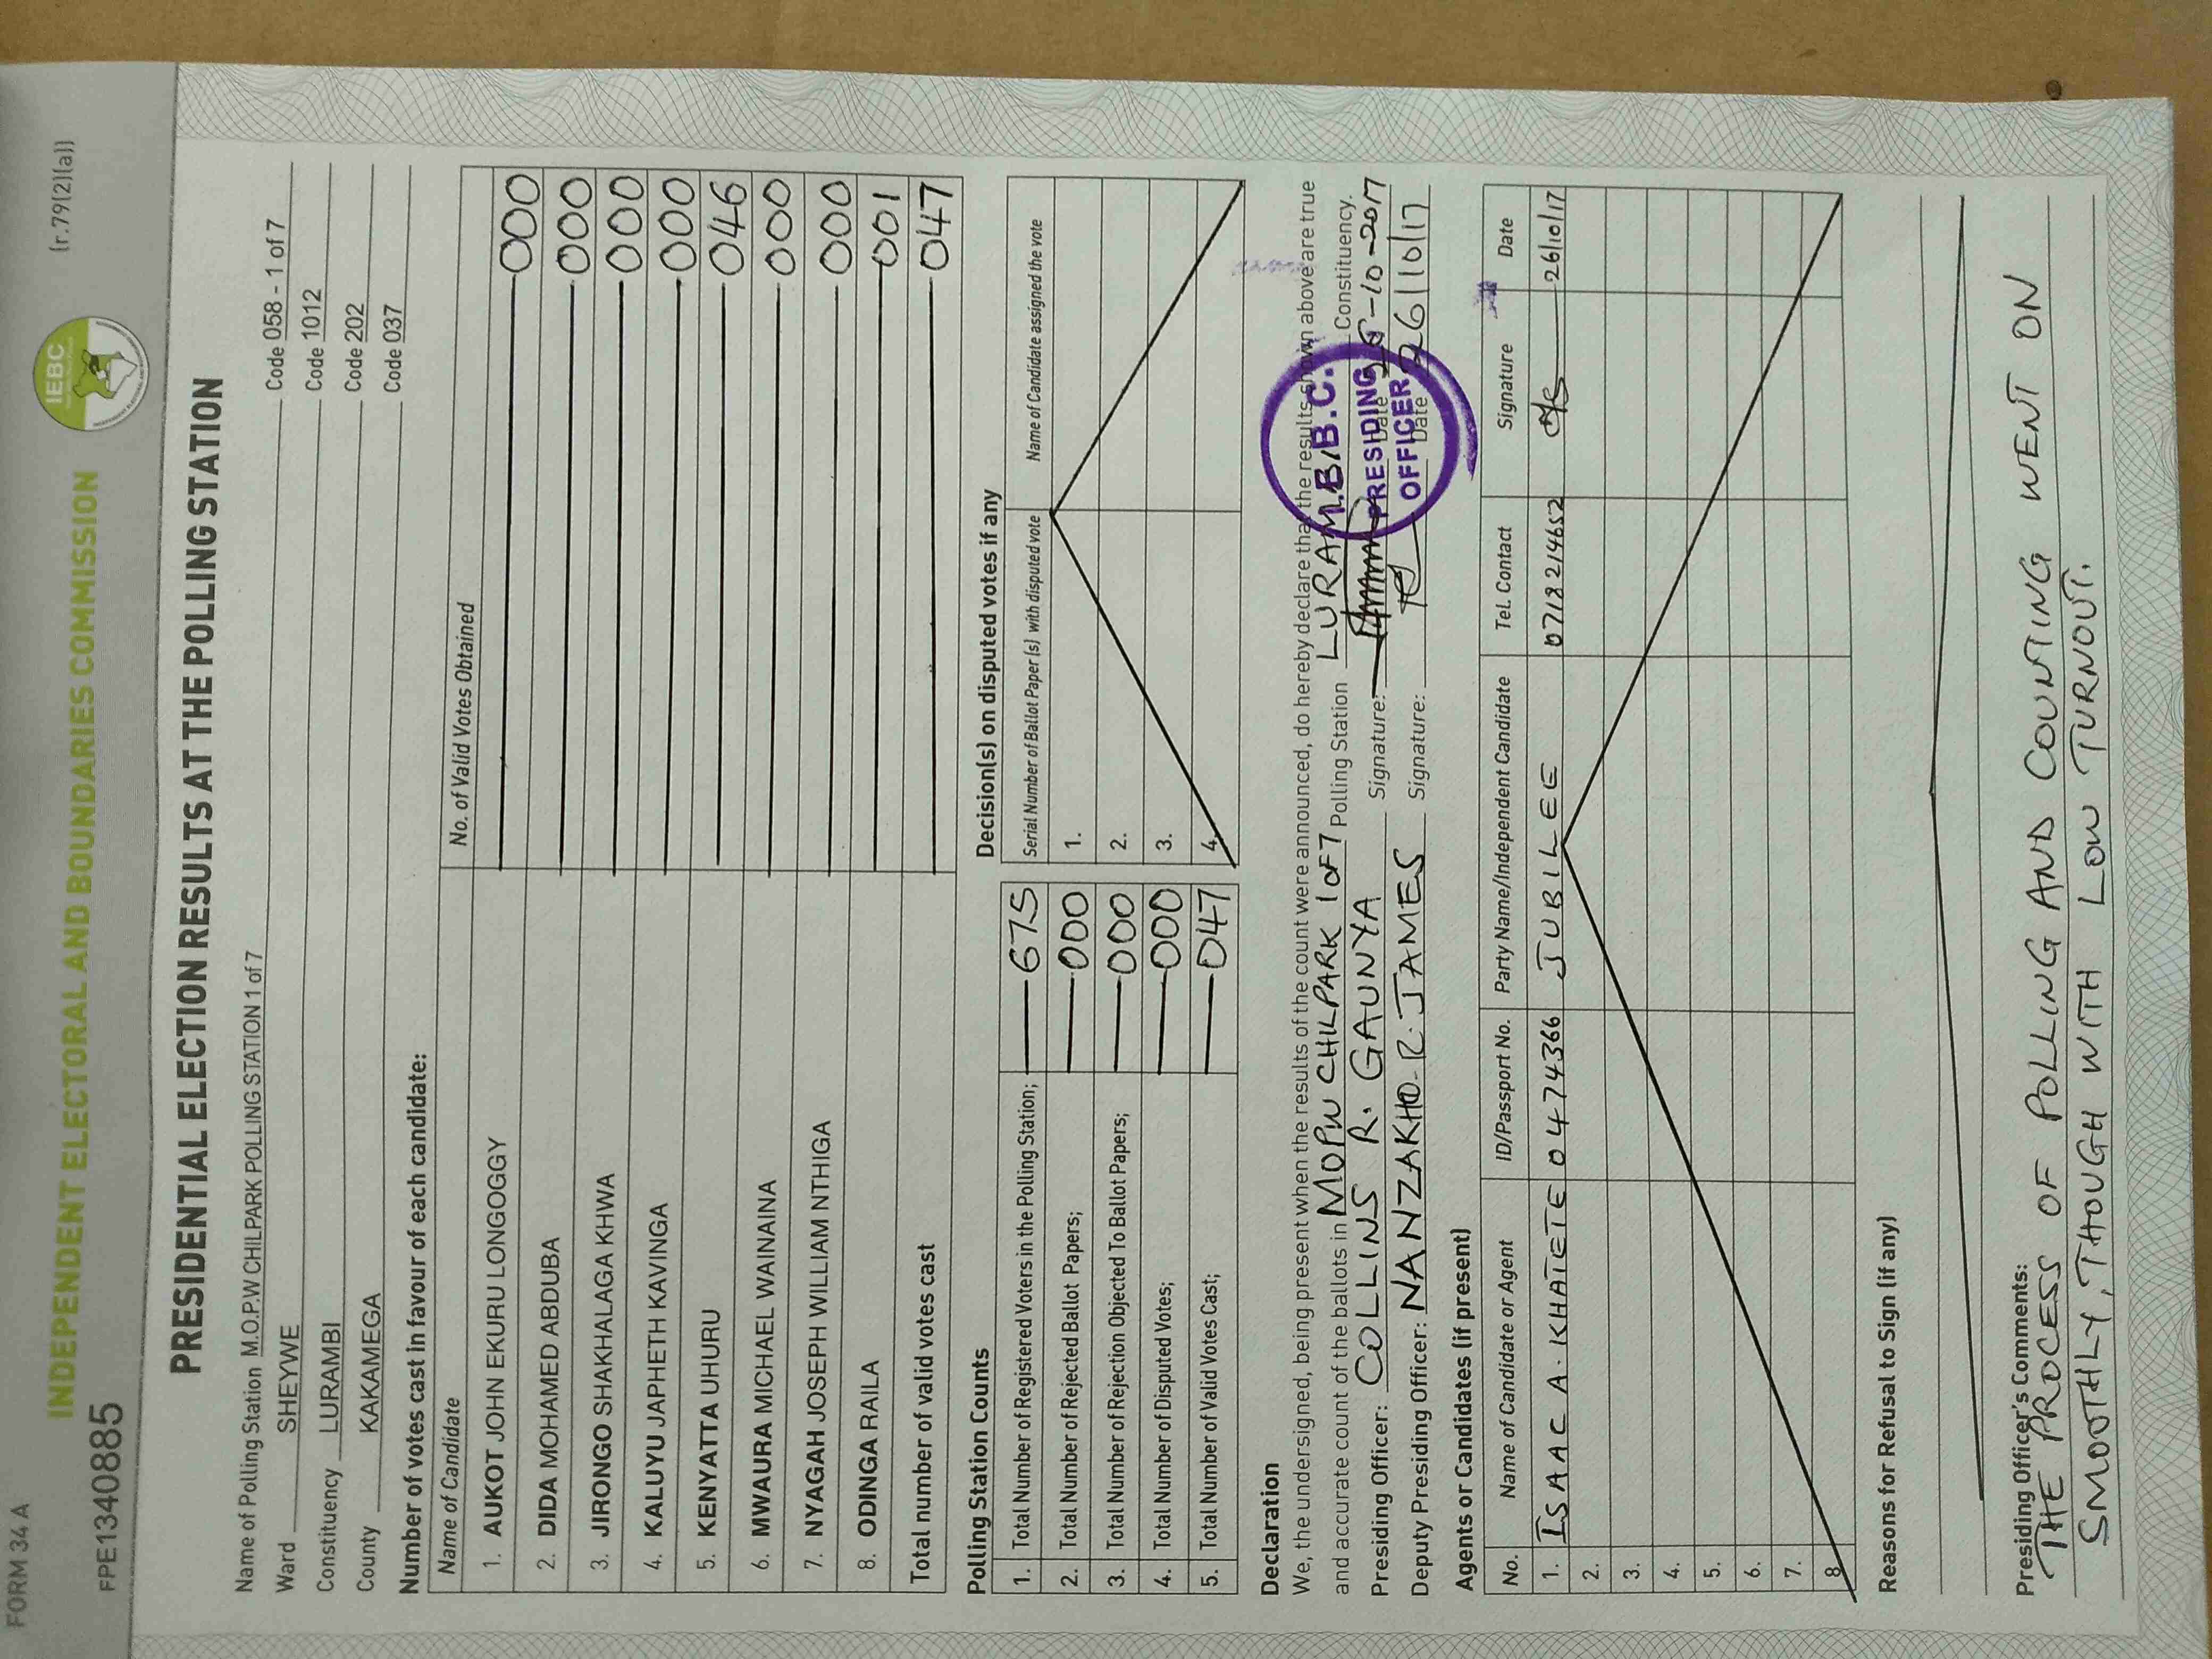 FORM 34 A
INDEPENDENT ELECTORAL AND BOUNDARIES COMMISSION
IEBC
(r.79(2)(a))
FPE1340885
PRESIDENTIAL ELECTION RESULTS AT THE POLLING STATION
Name of Polling Station M.O.P.W CHILPARK POLLING STATION 1 of 7 Code 058 - 1 of 7
Ward SHEYWE Code 1012
Constituency LURAMBI Code 202
County KAKAMEGA Code 037
Number of votes cast in favour of each candidate:
Name of Candidate No. of Valid Votes Obtained
1. AUKOT JOHN EKURU LONGOGGY 000
2. DIDA MOHAMED ABDUBA 000
3. JIRONGO SHAKHALAGA KHWA 000
4. KALUYU JAPHETH KAVINGA 000
5. KENYATTA UHURU 046
6. MWAURA MICHAEL WAINAINA 000
7. NYAGAH JOSEPH WILLIAM NTHIGA 000
8. ODINGA RAILA 001
Total number of valid votes cast 047
Polling Station Counts
1. Total Number of Registered Voters in the Polling Station; 675
2. Total Number of Rejected Ballot Papers; 000
3. Total Number of Rejection Objected To Ballot Papers; 000
4. Total Number of Disputed Votes; 000
5. Total Number of Valid Votes Cast; 047
Decision(s) on disputed votes if any
Serial Number of Ballot Paper (s) with disputed vote Name of Candidate assigned the vote
1.
2.
3.
4.
Declaration
We, the undersigned, being present when the results of the count were announced, do hereby declare that the results shown above are true
and accurate count of the ballots in MOPW CHILPARK 1 of 7 Polling Station LURAMBI Constituency.
Presiding Officer: COLLINS R. GAUNYA Signature: Date
Deputy Presiding Officer: NANZAKHO R. JAMES Signature: Date 26/10/17
I.E.B.C.
PRESIDING
OFFICER
Agents or Candidates (if present)
No. Name of Candidate or Agent ID/Passport No. Party Name/Independent Candidate Tel. Contact Signature Date
1. ISAAC A. KHATETE 04774366 JUBILEE 0718214652 26/10/17
2.
3.
4.
5.
6.
7.
8.
Reasons for Refusal to Sign (if any)
Presiding Officer's Comments:
THE PROCESS OF POLLING AND COUNTING WENT ON
SMOOTHLY, THOUGH WITH LOW TURNOUT.